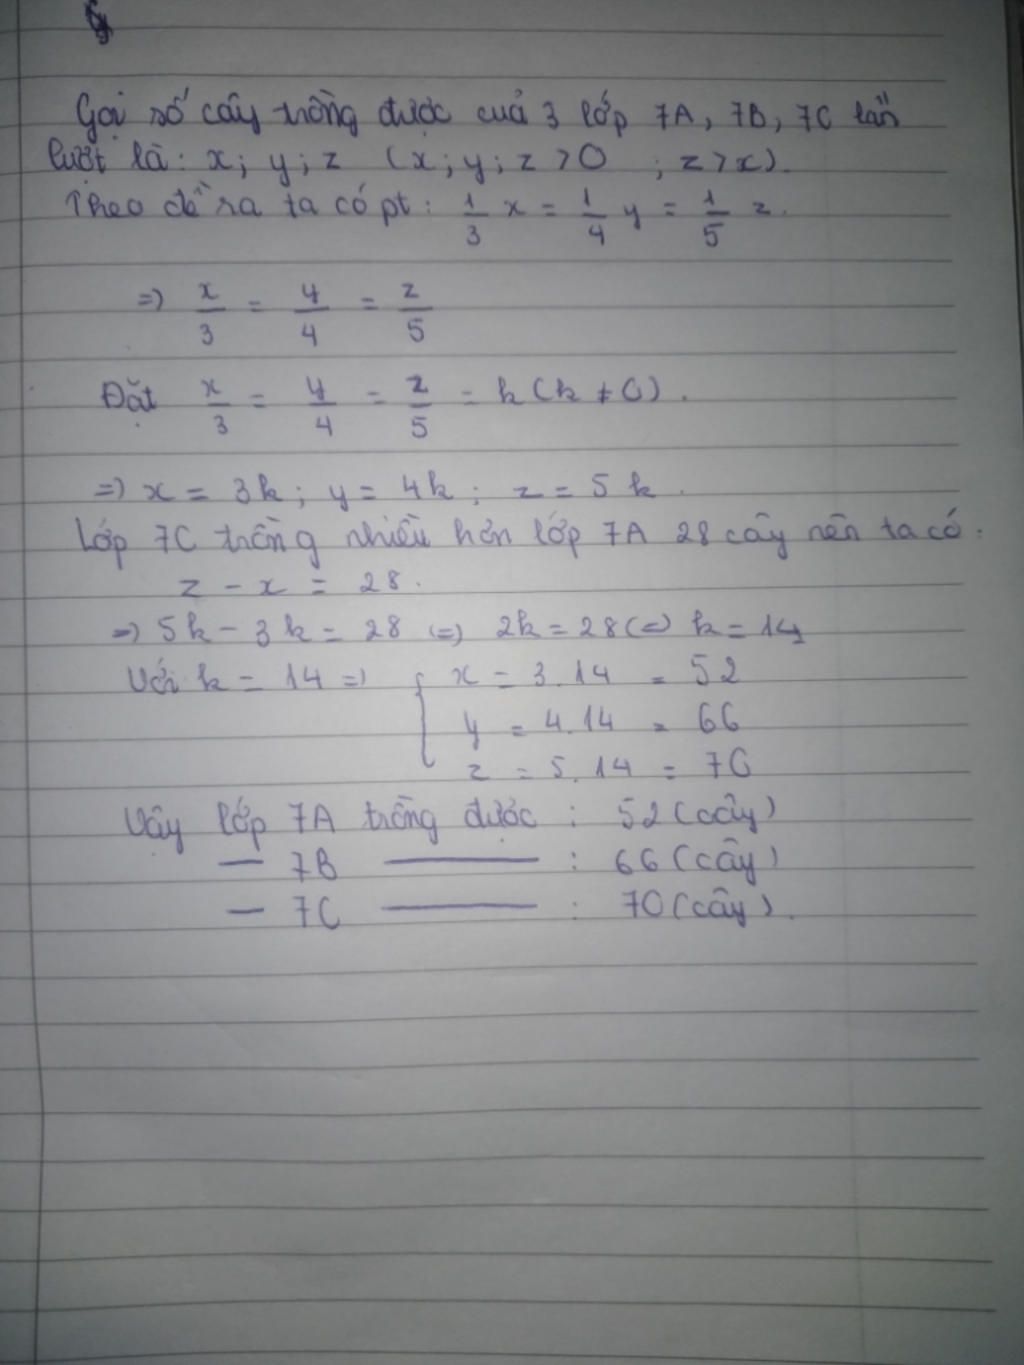 Gọi số cây trồng được cuả 3 lớp 7A, 7B, 7C lần
lượt là: x; y; z (x; y; z > 0 ; z > x).
Theo đề ra ta có pt: 1/3 x = 1/4 y = 1/5 z.
=> x/3 = y/4 = z/5
Đặt x/3 = y/4 = z/5 = k (k ≠ 0).
=> x = 3k; y = 4k; z = 5k.
Lớp 7C trồng nhiều hơn lớp 7A 28 cây nên ta có:
z - x = 28.
=> 5k - 3k = 28 <=> 2k = 28 <=> k = 14
Với k = 14 => { x = 3.14 = 52
y = 4.14 = 66
z = 5.14 = 70
Vậy lớp 7A trồng được : 52 (cây)
— 7B —— : 66 (cây)
— 7C —— : 70 (cây).